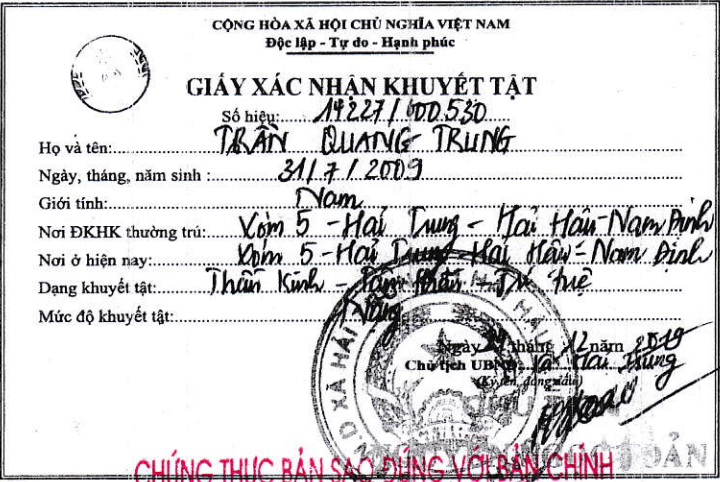 CỘNG HÒA XÃ HỘI CHỦ NGHĨA VIỆT NAM
Độc lập - Tự do - Hạnh phúc
GIẤY XÁC NHẬN KHUYẾT TẬT
Số hiệu:........14227/000.530
Họ và tên:........TRẦN QUANG TRUNG
Ngày, tháng, năm sinh :........31/7/2009
Giới tính:........Nam
Nơi ĐKHK thường trú:........Xóm 5 - Hải Trung - Hải Hậu - Nam Định
Nơi ở hiện nay:........Xóm 5 - Hải Trung - Hải Hậu - Nam Định
Dạng khuyết tật:........Thần Kinh - Tâm thần - Trí tuệ
Mức độ khuyết tật:........Nặng
Ngày tháng 12 năm 2019
Chủ tịch UBND xã Hải Trung
(Ký tên, đóng dấu)
CHỨNG THỰC BẢN SAO ĐÚNG VỚI BẢN CHÍNH